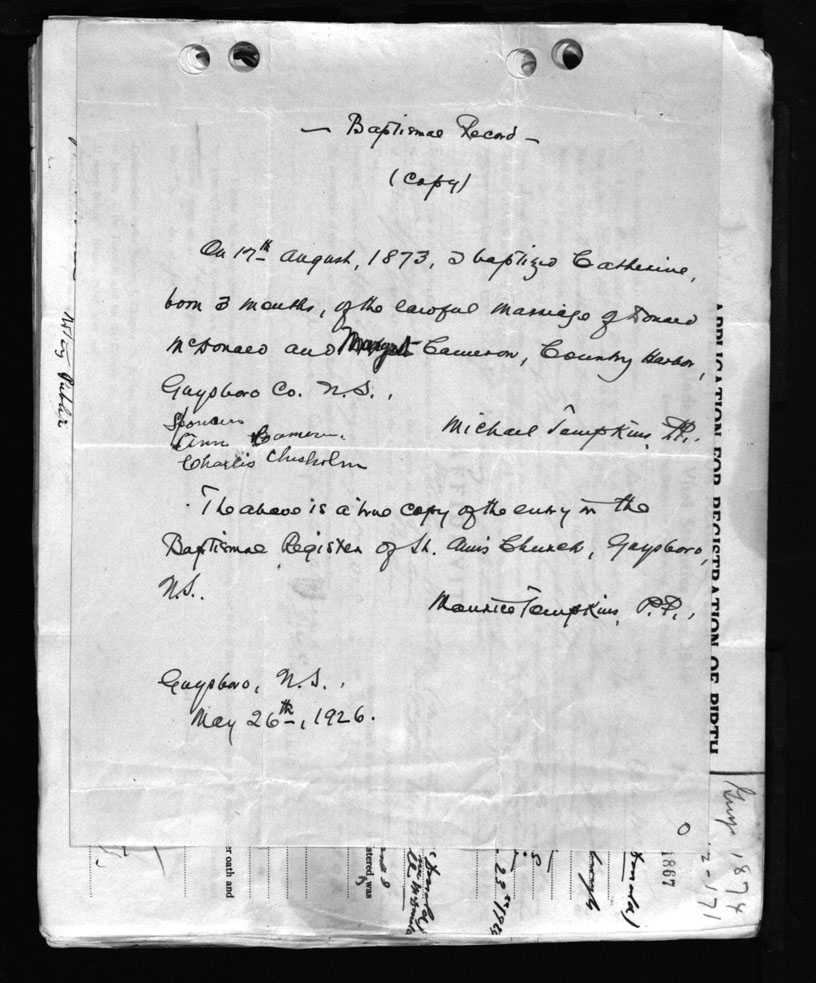 — Baptismal Record —
(Copy)
On 17th August, 1873, I baptized Catherine,
born 3 months, of the lawful marriage of Donald
McDonald and Margaret Cameron, Country Harbor,
Guysboro Co. N.S.,
Sponsors
Ann Cameron.
Charles Chisholm
Michael Tompkins, P.P.,
The above is a true copy of the entry in the
Baptismal Register of St. Ann's Church, Guysboro,
N.S.
Maurice Tompkins, P.P.,
Guysboro, N.S.,
May 26th, 1926.
Notary Public
APPLICATION FOR REGISTRATION OF BIRTH
Guys 1874
2-171
0
1867
er oath and
stered was